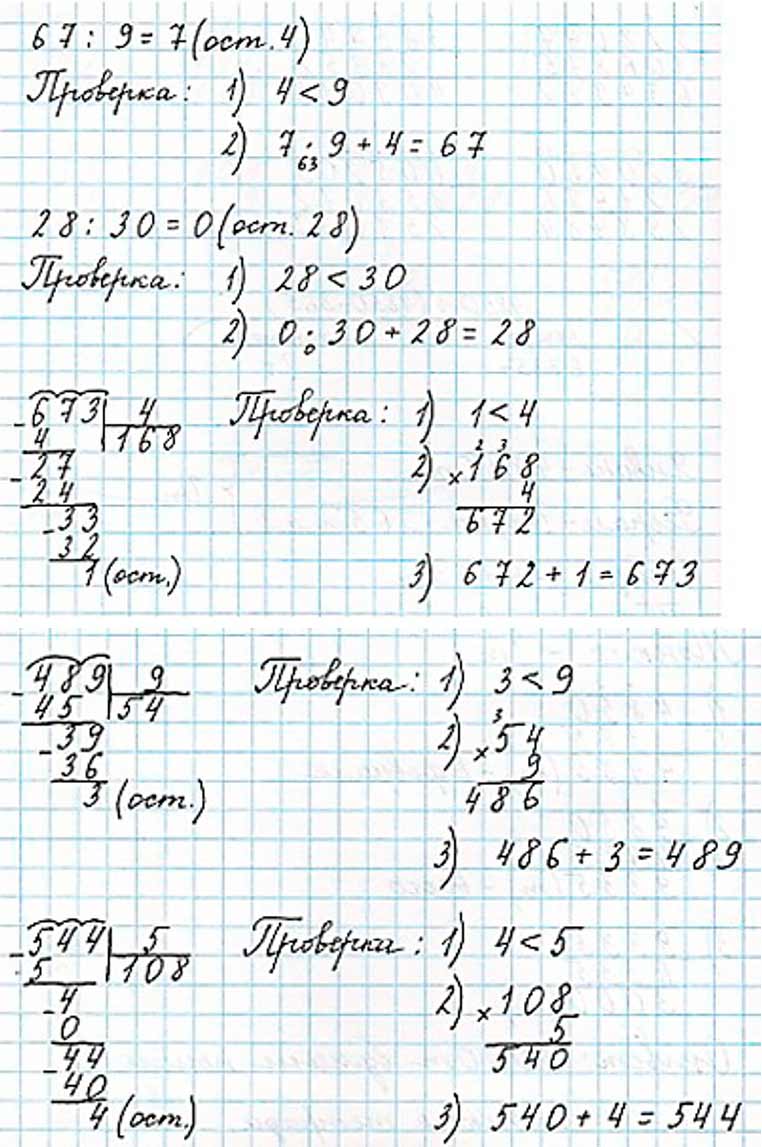 67 : 9 = 7 (ост. 4)
Проверка: 1) 4 < 9
2) 7 · 9 + 4 = 67
63
28 : 30 = 0 (ост. 28)
Проверка: 1) 28 < 30
2) 0 · 30 + 28 = 28
0
- 673 | 4 Проверка: 1) 1 < 4
4 | 168
2 3
- 27 2) × 168
24 4
- 33 672
32
1 (ост.) 3) 672 + 1 = 673
- 489 | 9 Проверка: 1) 3 < 9
45 | 54
3
- 39 2) × 54
36 9
3 (ост.) 486
3) 486 + 3 = 489
- 544 | 5 Проверка: 1) 4 < 5
5 | 108
- 4 2) × 108
0 5
- 44 540
40
4 (ост.) 3) 540 + 4 = 544